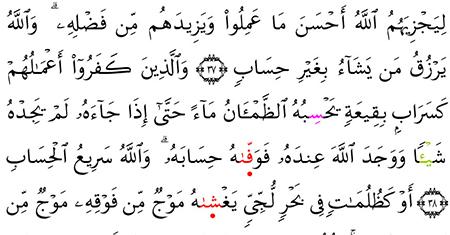 لِيَجْزِيَهُمُ ٱللَّهُ أَحْسَنَ مَا عَمِلُوا۟ وَيَزِيدَهُم مِّن فَضْلِهِۦ ۗ وَٱللَّهُ
يَرْزُقُ مَن يَشَآءُ بِغَيْرِ حِسَابٍ ﴿٣٧﴾ وَٱلَّذِينَ كَفَرُوٓا۟ أَعْمَٰلُهُمْ
كَسَرَابٍۭ بِقِيعَةٍ يَحْسِبُهُ ٱلظَّمْـَٔانُ مَآءً حَتَّىٰٓ إِذَا جَآءَهُۥ لَمْ يَجِدْهُ
شَيْـًٔا وَوَجَدَ ٱللَّهَ عِندَهُۥ فَوَفَّىٰهُ حِسَابَهُۥ ۗ وَٱللَّهُ سَرِيعُ ٱلْحِسَابِ
﴿٣٨﴾ أَوْ كَظُلُمَٰتٍ فِى بَحْرٍ لُّجِّىٍّ يَغْشَىٰهُ مَوْجٌ مِّن فَوْقِهِۦ مَوْجٌ مِّن